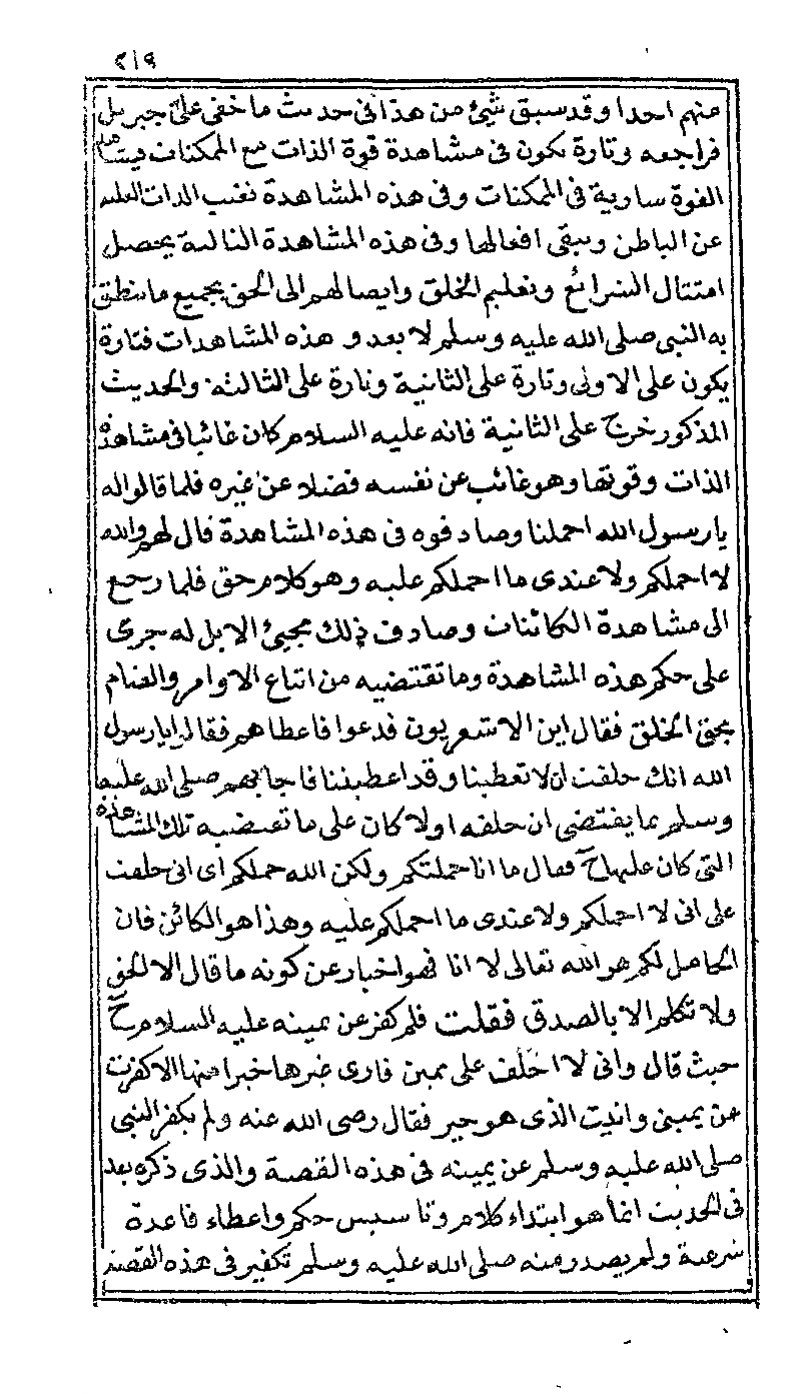 ٢١٩
منهم احدا وقد سبق شيئ من هذا في حديث ما خفى علىّ جبريل
فراجعه وتارة يكون في مشاهدة قوة الذات مع الممكنات فيشاهد
القوة سارية في الممكنات وفي هذه المشاهدة تغيب الذات العلية
عن الباطن ويبقى افعالها وفي هذه المشاهدة الثالثة يحصل
امتثال الشرائع وتعليم الخلق وايصالهم الى الحق بجميع ما ينطق
به النبي صلى الله عليه وسلم لا يعدو هذه المشاهدات فتارة
يكون على الاولى وتارة على الثانية وتارة على الثالثة والحديث
المذكور خرج على الثانية فانه عليه السلام كان غائبا في مشاهدة
الذات وقوتها وهو غائب عن نفسه فضلا عن غيره فلما قالوا له
يا رسول الله احملنا وصادفوه في هذه المشاهدة قال لهم والله
لا احملكم ولا عندى ما احملكم عليه وهو كلام حق فلما رجع
الى مشاهدة الكائنات وصادف ذلك مجيئ الابل له جرى
على حكم هذه المشاهدة وما تقتضيه من اتباع الاوامر والقيام
بحق الخلق فقال اين الاشعريون فدعوا فاعطاهم فقالوا يا رسول
الله انك حلفت ان لا تعطينا وقد اعطيتنا فاجابهم صلى الله عليه
وسلم بما يقتضى ان حلفه اولا كان على ما تقتضيه تلك المشاهدة
التى كان عليها ح فقال ما انا حملتكم ولكن الله حملكم اى انى حلفت
على انى لا احملكم ولا عندى ما احملكم عليه وهذا هو الكائن فان
الحامل لكم هو الله تعالى لا انا فهو اخبار عن كونه ما قال الا الحق
ولا تكلم الا بالصدق فقلت فلم كفر عن يمينه عليه السلام ح
حيث قال وانى لا احلف على يمين فارى غيرها خيرا منها الا كفرت
عن يمينى واتيت الذى هو خير فقال رضى الله عنه ولم يكفر النبي
صلى الله عليه وسلم عن يمينه في هذه القصة والذى ذكره بعد
في الحديث انما هو ابتداء كلام وتاسيس حكم واعطاء قاعدة
شرعية ولم يصدر منه صلى الله عليه وسلم تكفير في هذه القصة